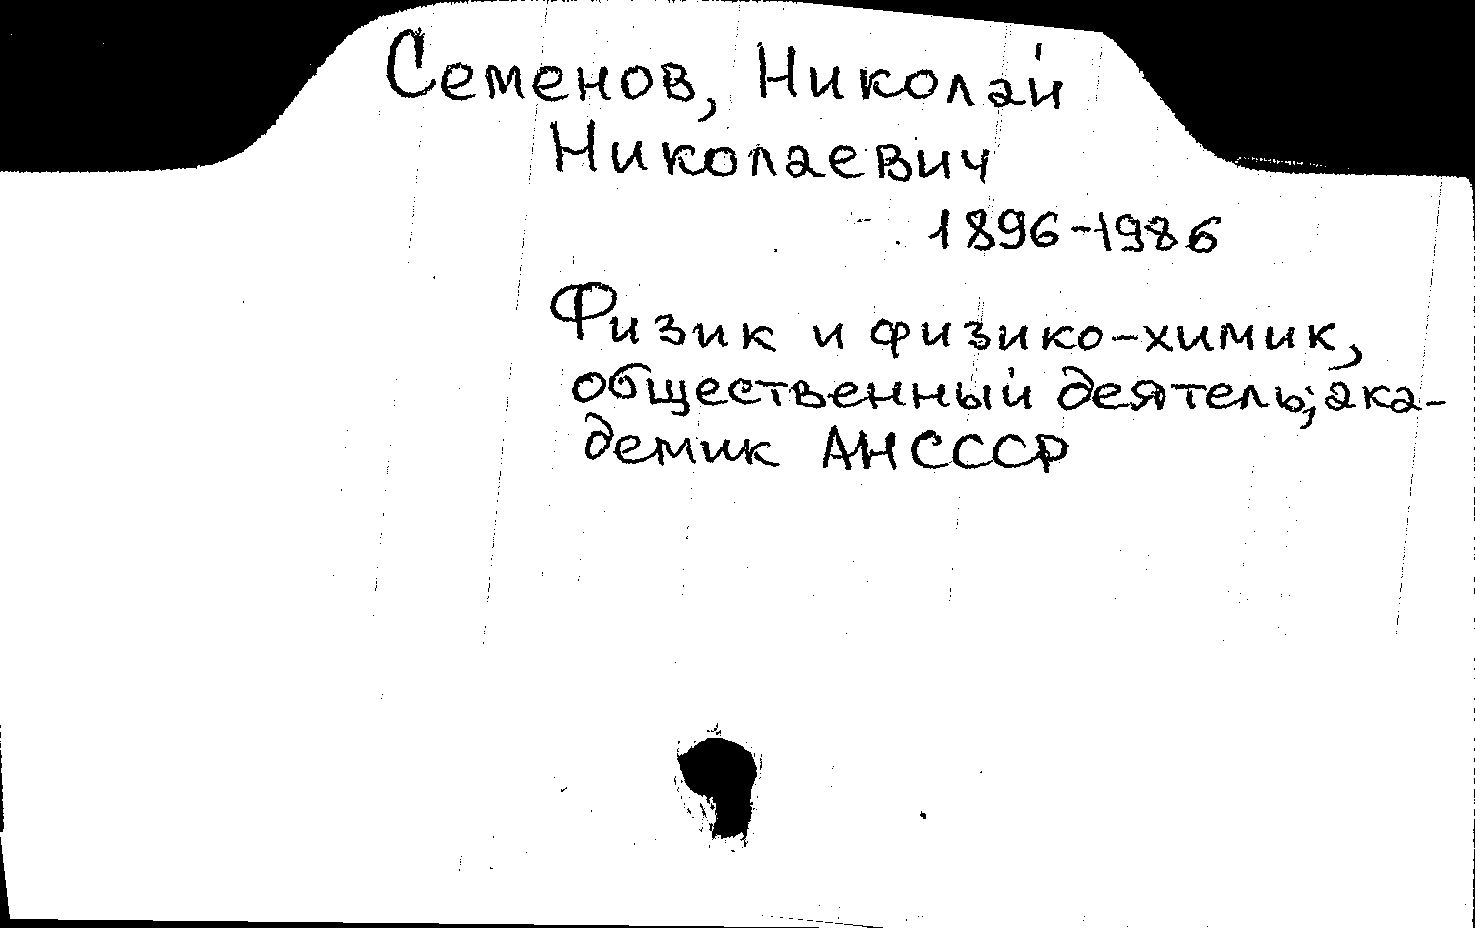 Семенов, Николай
Николаевич
1896-1986
Физик и физико-химик,
общественный деятель; ака-
демик АН СССР